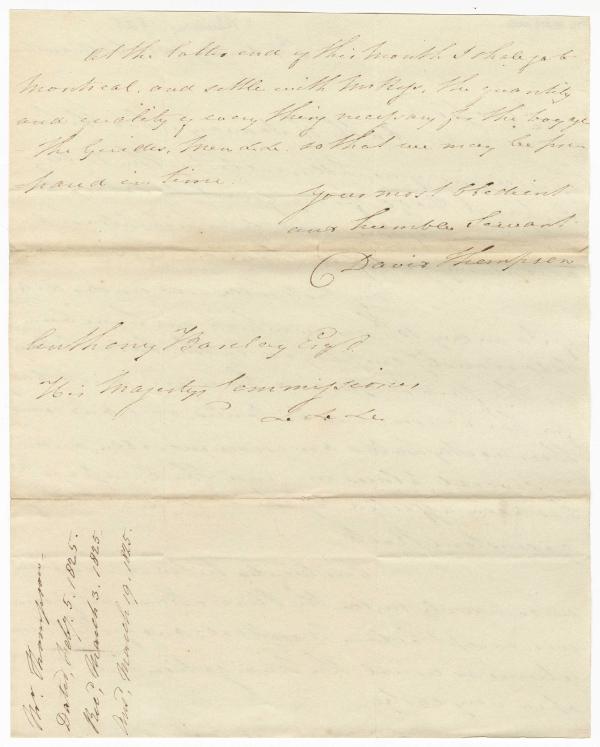 At the latter end of this Month I shall go to
Montreal, and settle with Mr Keys, the quantity
and quality of every thing necessary for the voyage
the Guides, Men &c &c. so that we may be pre
pared in time.
Your most Obedient
and humble Servant
David Thompson
Anthony Barclay Esqr.
His Majestys Commissioner,
&c &c &c.
Mr. Thompson
Dated, Feby. 5. 1825.
Recd. March 3. 1825
Ansd. March 19. 1825.